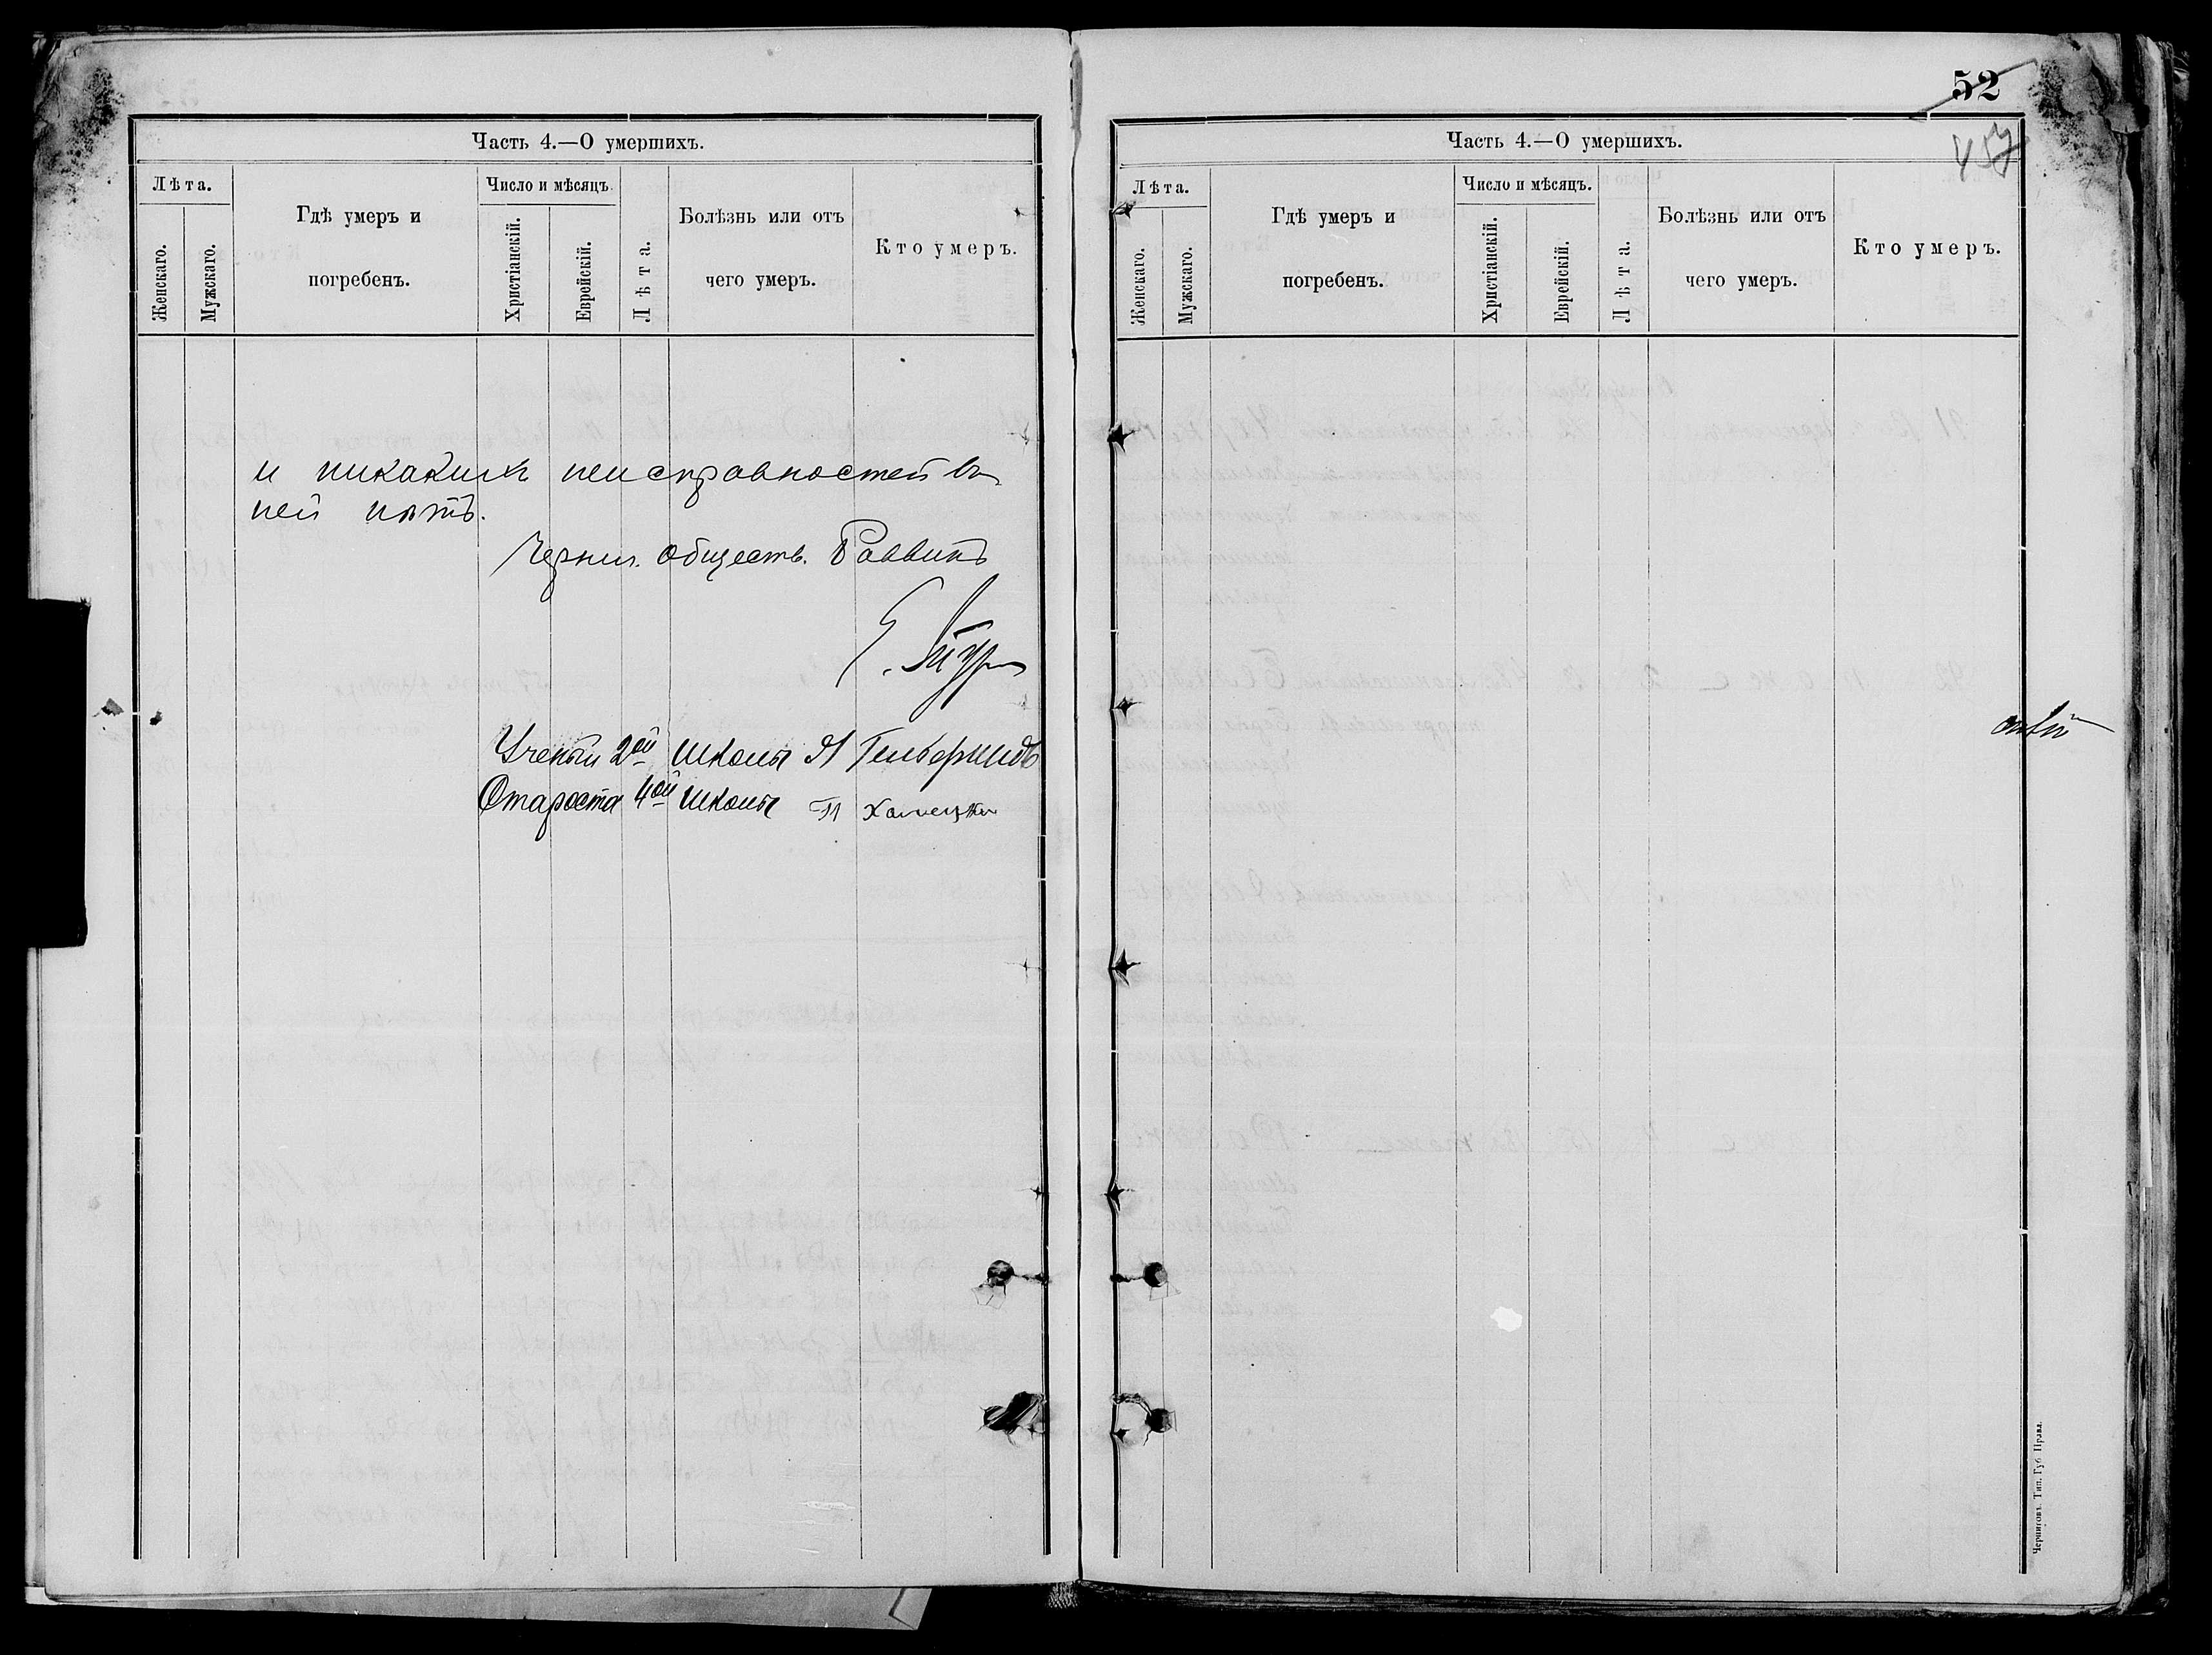 Часть 4.—О умершихъ.
Лѣта.
Женскаго.
Мужскаго.
Гдѣ умеръ и
погребенъ.
Число и мѣсяцъ.
Христіанскій.
Еврейскій.
Лѣта.
Болѣзнь или отъ
чего умеръ.
Кто умеръ.
и никакихъ неисправностей въ
ней нѣтъ.
Черниг. Обществ. Раввинъ
Ученый 2ой школы
Староста 4ой школы
52
457
Часть 4.—О умершихъ.
Лѣта.
Женскаго.
Мужскаго.
Гдѣ умеръ и
погребенъ.
Число и мѣсяцъ.
Христіанскій.
Еврейскій.
Лѣта.
Болѣзнь или отъ
чего умеръ.
Кто умеръ.
Черниговъ. Тип. Губ. Правл.